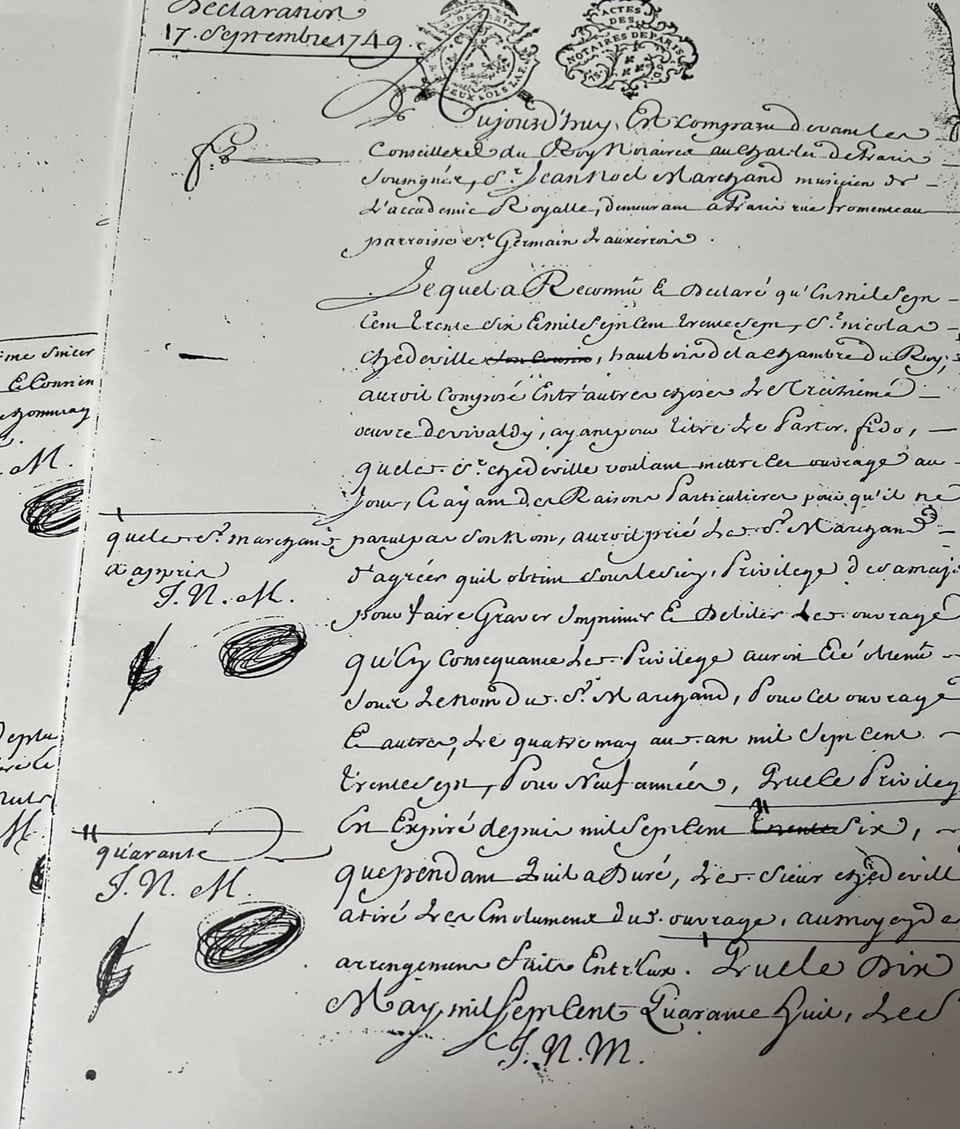 Declaration
17. Septembre 1749.
DEUX SOLS
ACTES
DES
NOTAIRES DE PARIS
Aujourd'huy, Est Comparu devant les
Conseillers du Roy Notaires au Chatelet de Paris
Soussignés, Sr. Jean Noel Marchand musicien de
L'accademie Royalle, demeurant a Paris rue fromenteau
parroisse St. Germain L'auxerrois.
Lequel a Reconnû Et Declaré qu'En mil Sept
Cent trente Six Et mil Sept Cent trente Sept, Sr. nicolas
chedeville son Cousin, hautbois de la chambre du Roy,
auroit Composé Entr'autres choses Le Treiziéme
oeuvre de vivaldy, ayant pour titre Le Pastor fido,
que led. Sr. chedeville voulant mettre Cet ouvrage au
Jour, Et ayant des Raisons Particulieres pour qu'il ne
parut pas Son Nom, auroit prié Led. Sr. Marchand
d'agréer quil obtint Sous le Sien, Privilege de Sa maj.
pour faire Graver Imprimer Et Debiter Led. ouvrage
qu'En Consequance Led. Privilege auroit Eté obtenû
Sous Le Nom dud. Sr. Marchand, Pour Cet ouvrage
Et autres, Le quatre may aud. an mil Sept Cent
trente Sept, Pour Neuf années, Que le Privileg
Est Expiré depuis mil Sept Cent trente Six,
que pendant Quil a Duré, Led. Sieur chedevill
a tiré Les Emoluments dud. ouvrage, au moyen de
arrengements faits Entr'Eux. Que le Dix
May mil Sept Cent Quarante huit, Led S
J. N. M.
que led. Sr. marchand
a appris
J. N. M.
quarante
J. N. M.
M.
M.